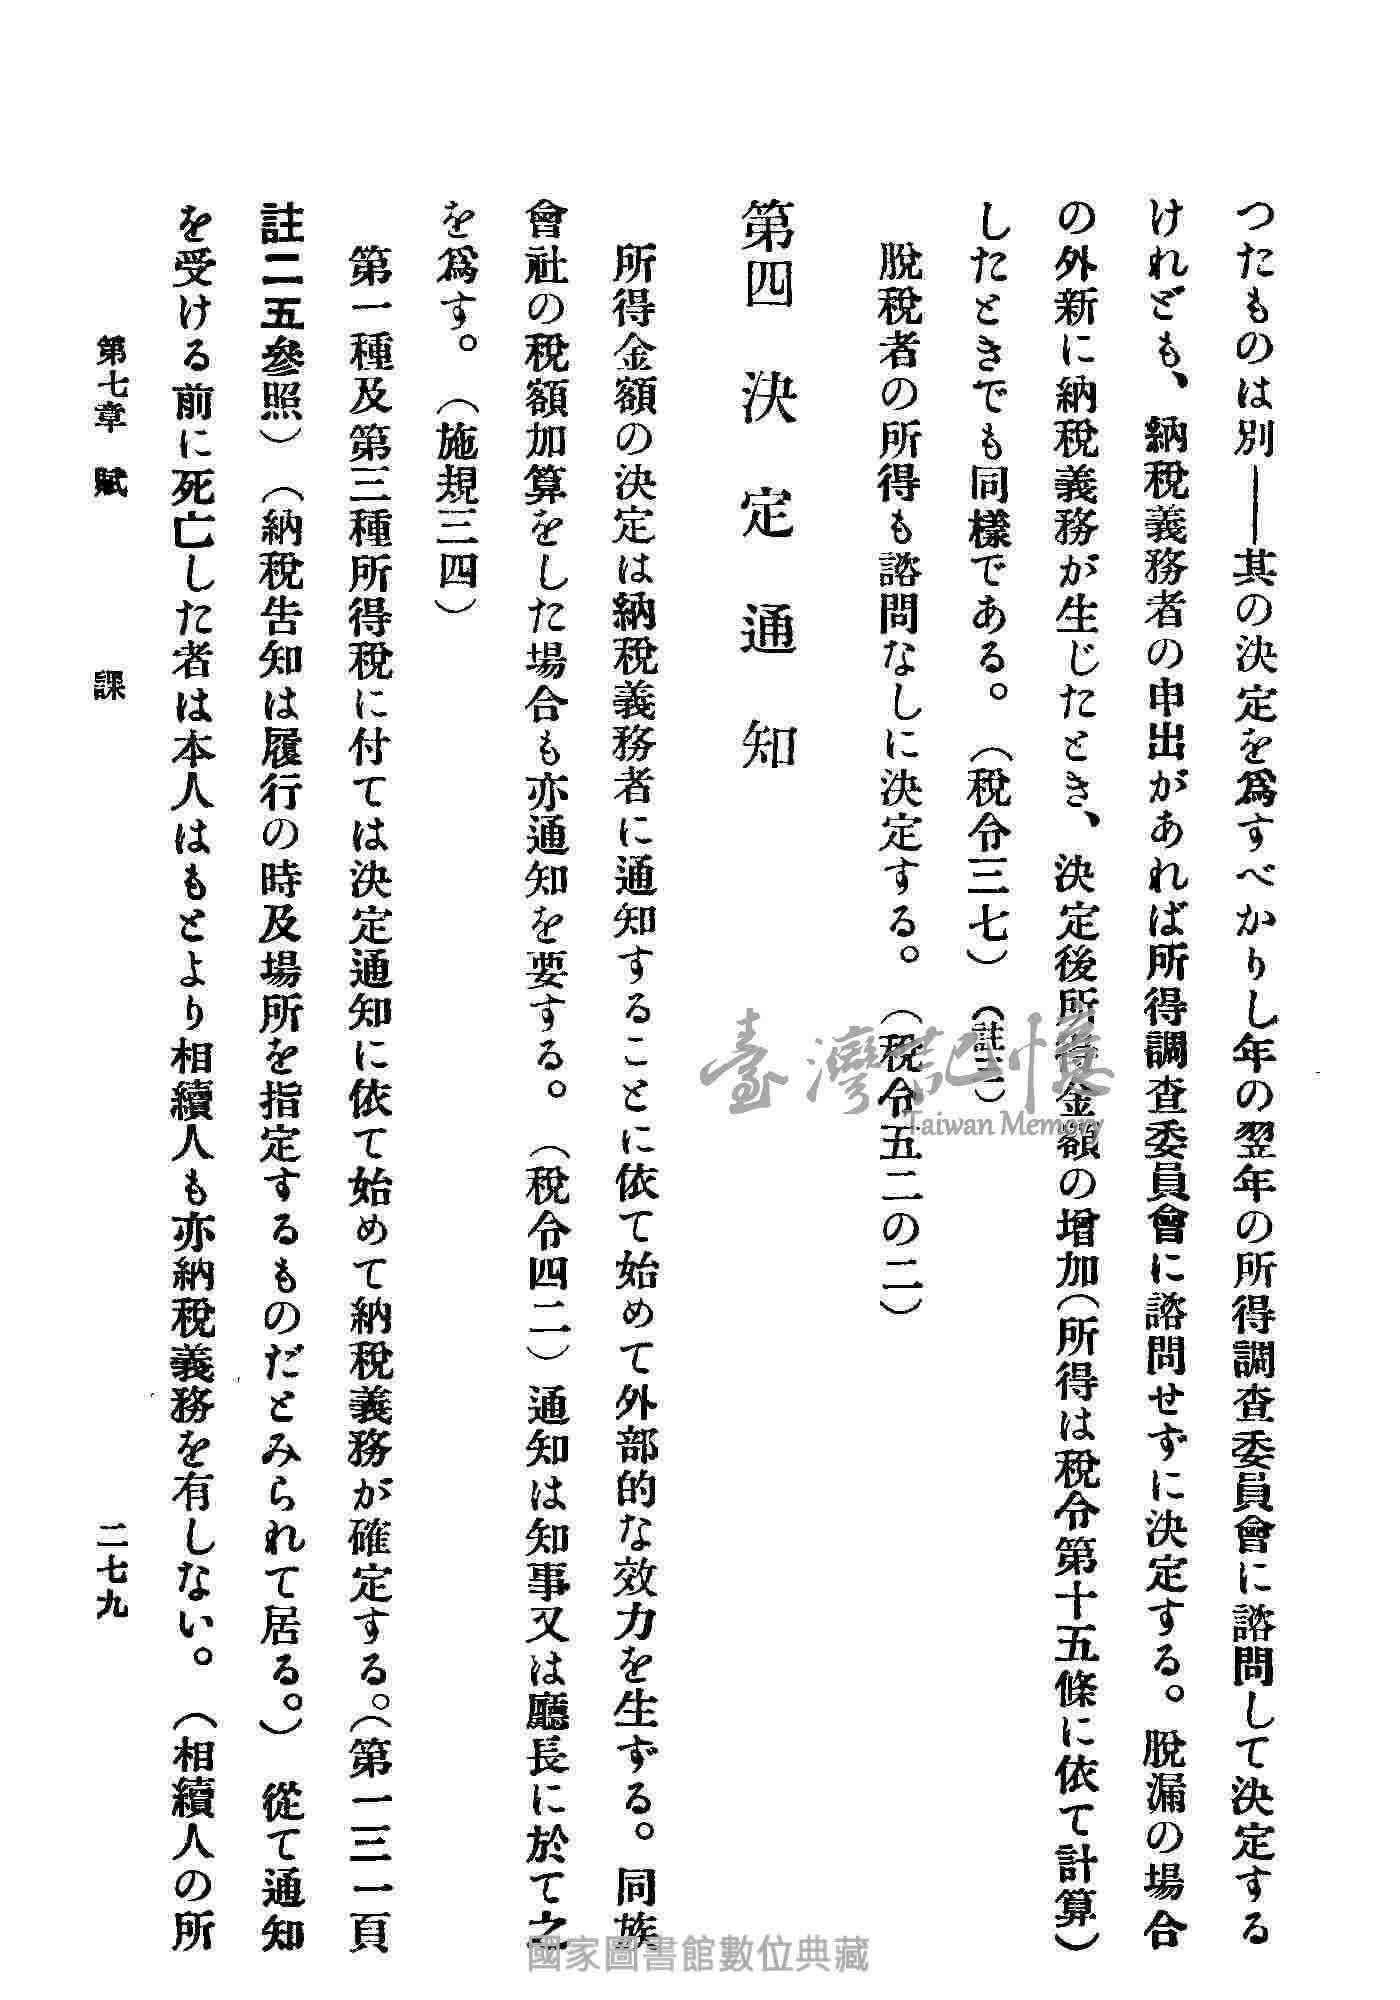 つたものは別――其の決定を爲すべかりし年の翌年の所得調査委員會に諮問して決定する
けれども、納稅義務者の申出があれば所得調査委員會に諮問せずに決定する。脫漏の場合
の外新に納稅義務が生じたとき、決定後所得金額の增加(所得は稅令第十五條に依て計算)
したときでも同樣である。(稅令三七)(註二)
脫稅者の所得も諮問なしに決定する。(稅令五二の二)
第四 決定通知
所得金額の決定は納稅義務者に通知することに依て始めて外部的な效力を生ずる。同族
會社の稅額加算をした場合も亦通知を要する。(稅令四二)通知は知事又は廳長に於て之
を爲す。(施規三四)
第一種及第三種所得稅に付ては決定通知に依て始めて納稅義務が確定する。(第一三一頁
註二五參照)(納稅告知は履行の時及場所を指定するものだとみられて居る。)從て通知
を受ける前に死亡した者は本人はもとより相續人も亦納稅義務を有しない。(相續人の所
第七章 賦課
二七九
臺灣記憶
Taiwan Memory
國家圖書館數位典藏